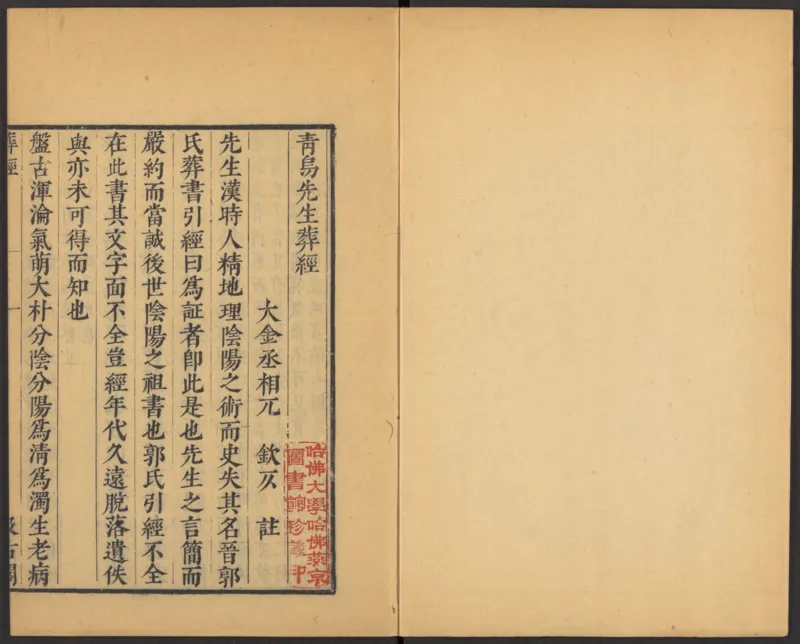 青烏先生葬經
大金丞相兀 欽仄 註
先生漢時人精地理陰陽之術而史失其名晉郭
氏葬書引經曰爲証者卽此是也先生之言簡而
嚴約而當誠後世陰陽之祖書也郭氏引經不全
在此書其文字面不全豈經年代久遠脫落遺佚
與亦未可得而知也
盤古渾淪氣萌大朴分陰分陽爲清爲濁生老病
葬經
一
汲古閣
哈佛大學哈佛燕京
圖書館珍藏印